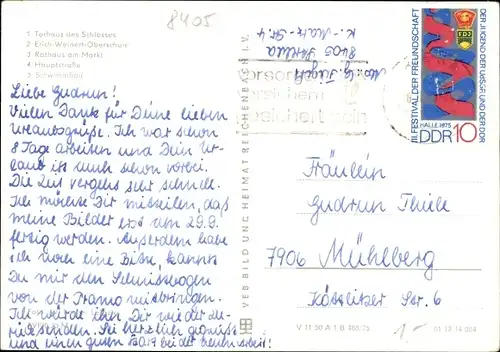 8405
1 Torhaus des Schlosses
2 Erich-Weinert-Oberschule
3 Rathaus am Markt
4 Hauptstraße
5 Schwimmbad
Liebe Gudrun!
Vielen Dank für Deine lieben
Urlaubsgrüße. Ich war schon
8 Tage arbeiten und Dein Ur-
laub ist auch schon vorbei.
Die Zeit vergeht sehr schnell.
Ich möchte Dir mitteilen, daß
meine Bilder erst am 29.9.
fertig werden. Außerdem habe
ich noch eine Bitte, kannst
Du mir den
von der Framo mitbringen.
Ich würde ihn Dir wieder
Sei herzlich gegrüßt
und einen guten Start bei der
VEB BILD UND HEIMAT REICHENBACH i. V.
8405 Strehla
K.-Marx-Str. 4
III. FESTIVAL DER FREUNDSCHAFT
DER JUGEND DER UdSSR UND DER DDR
FDJ
HALLE 1975
DDR 10
Fräulein
Gudrun Thiele
7906 Mühlberg
Köttlitzer Str. 6
V 11 50 A 1 B
01 13 14 004
1-